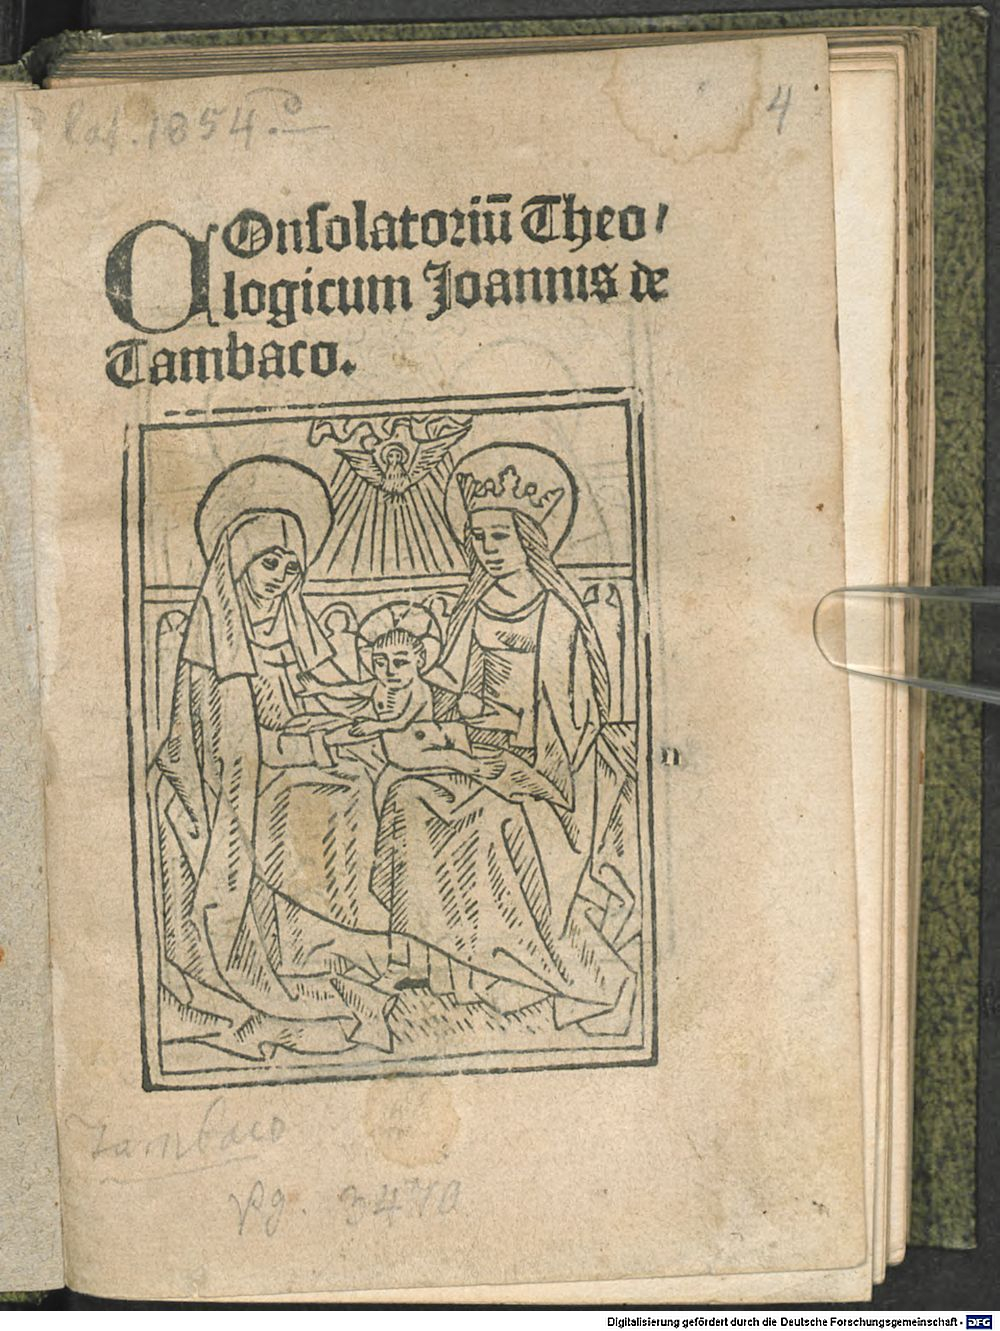 4
COnsolatoriū Theo/
logicum Joannis de
Tambaco.
n
Tambaco
Pg. 3470
Digitalisierung gefördert durch die Deutsche Forschungsgemeinschaft - DFG